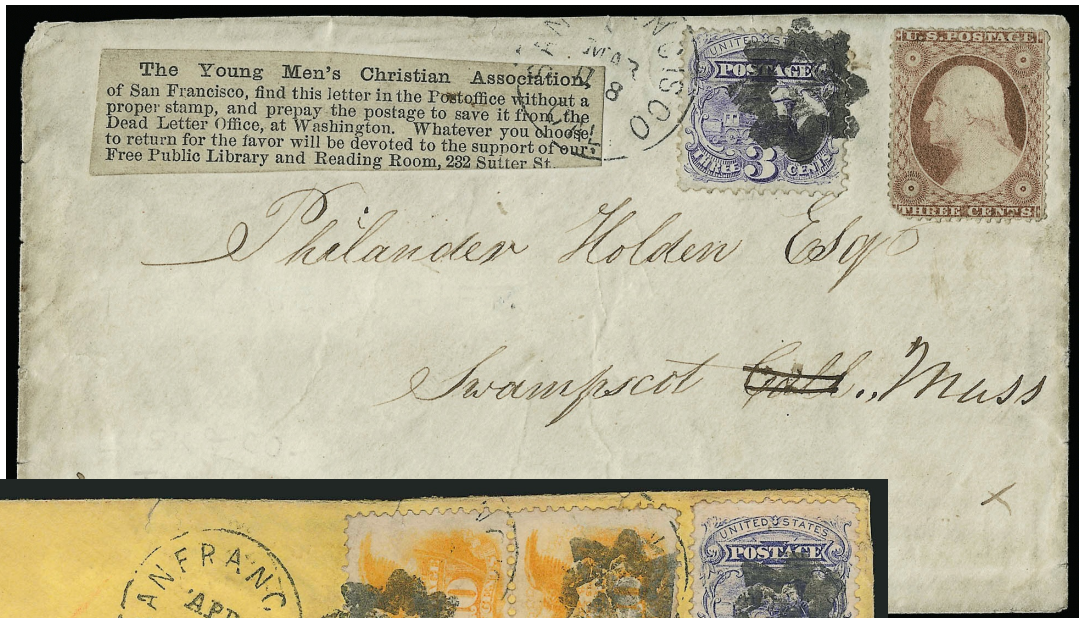 The Young Men's Christian Association
of San Francisco, find this letter in the Postoffice without a
proper stamp, and prepay the postage to save it from the
Dead Letter Office, at Washington. Whatever you choose
to return for the favor will be devoted to the support of our
Free Public Library and Reading Room, 232 Sutter St.
MAR
8
UNITED STATES
POSTAGE
THREE 3 CENTS
U.S. POSTAGE
THREE CENTS
Philander Holden Esq
Swampscot Call.,, Mass
AN FRANC
APR
UNITED STATES
POSTAGE